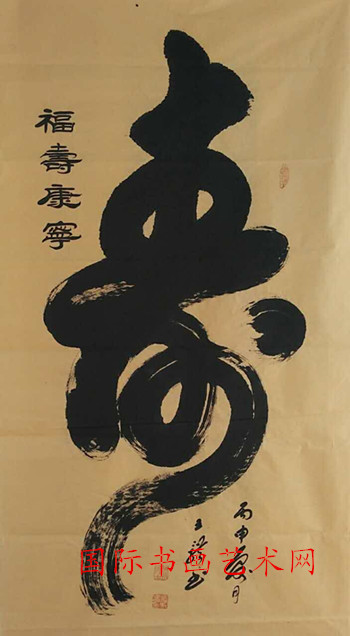 福壽康寧
寿
丙申
国际书画艺术网